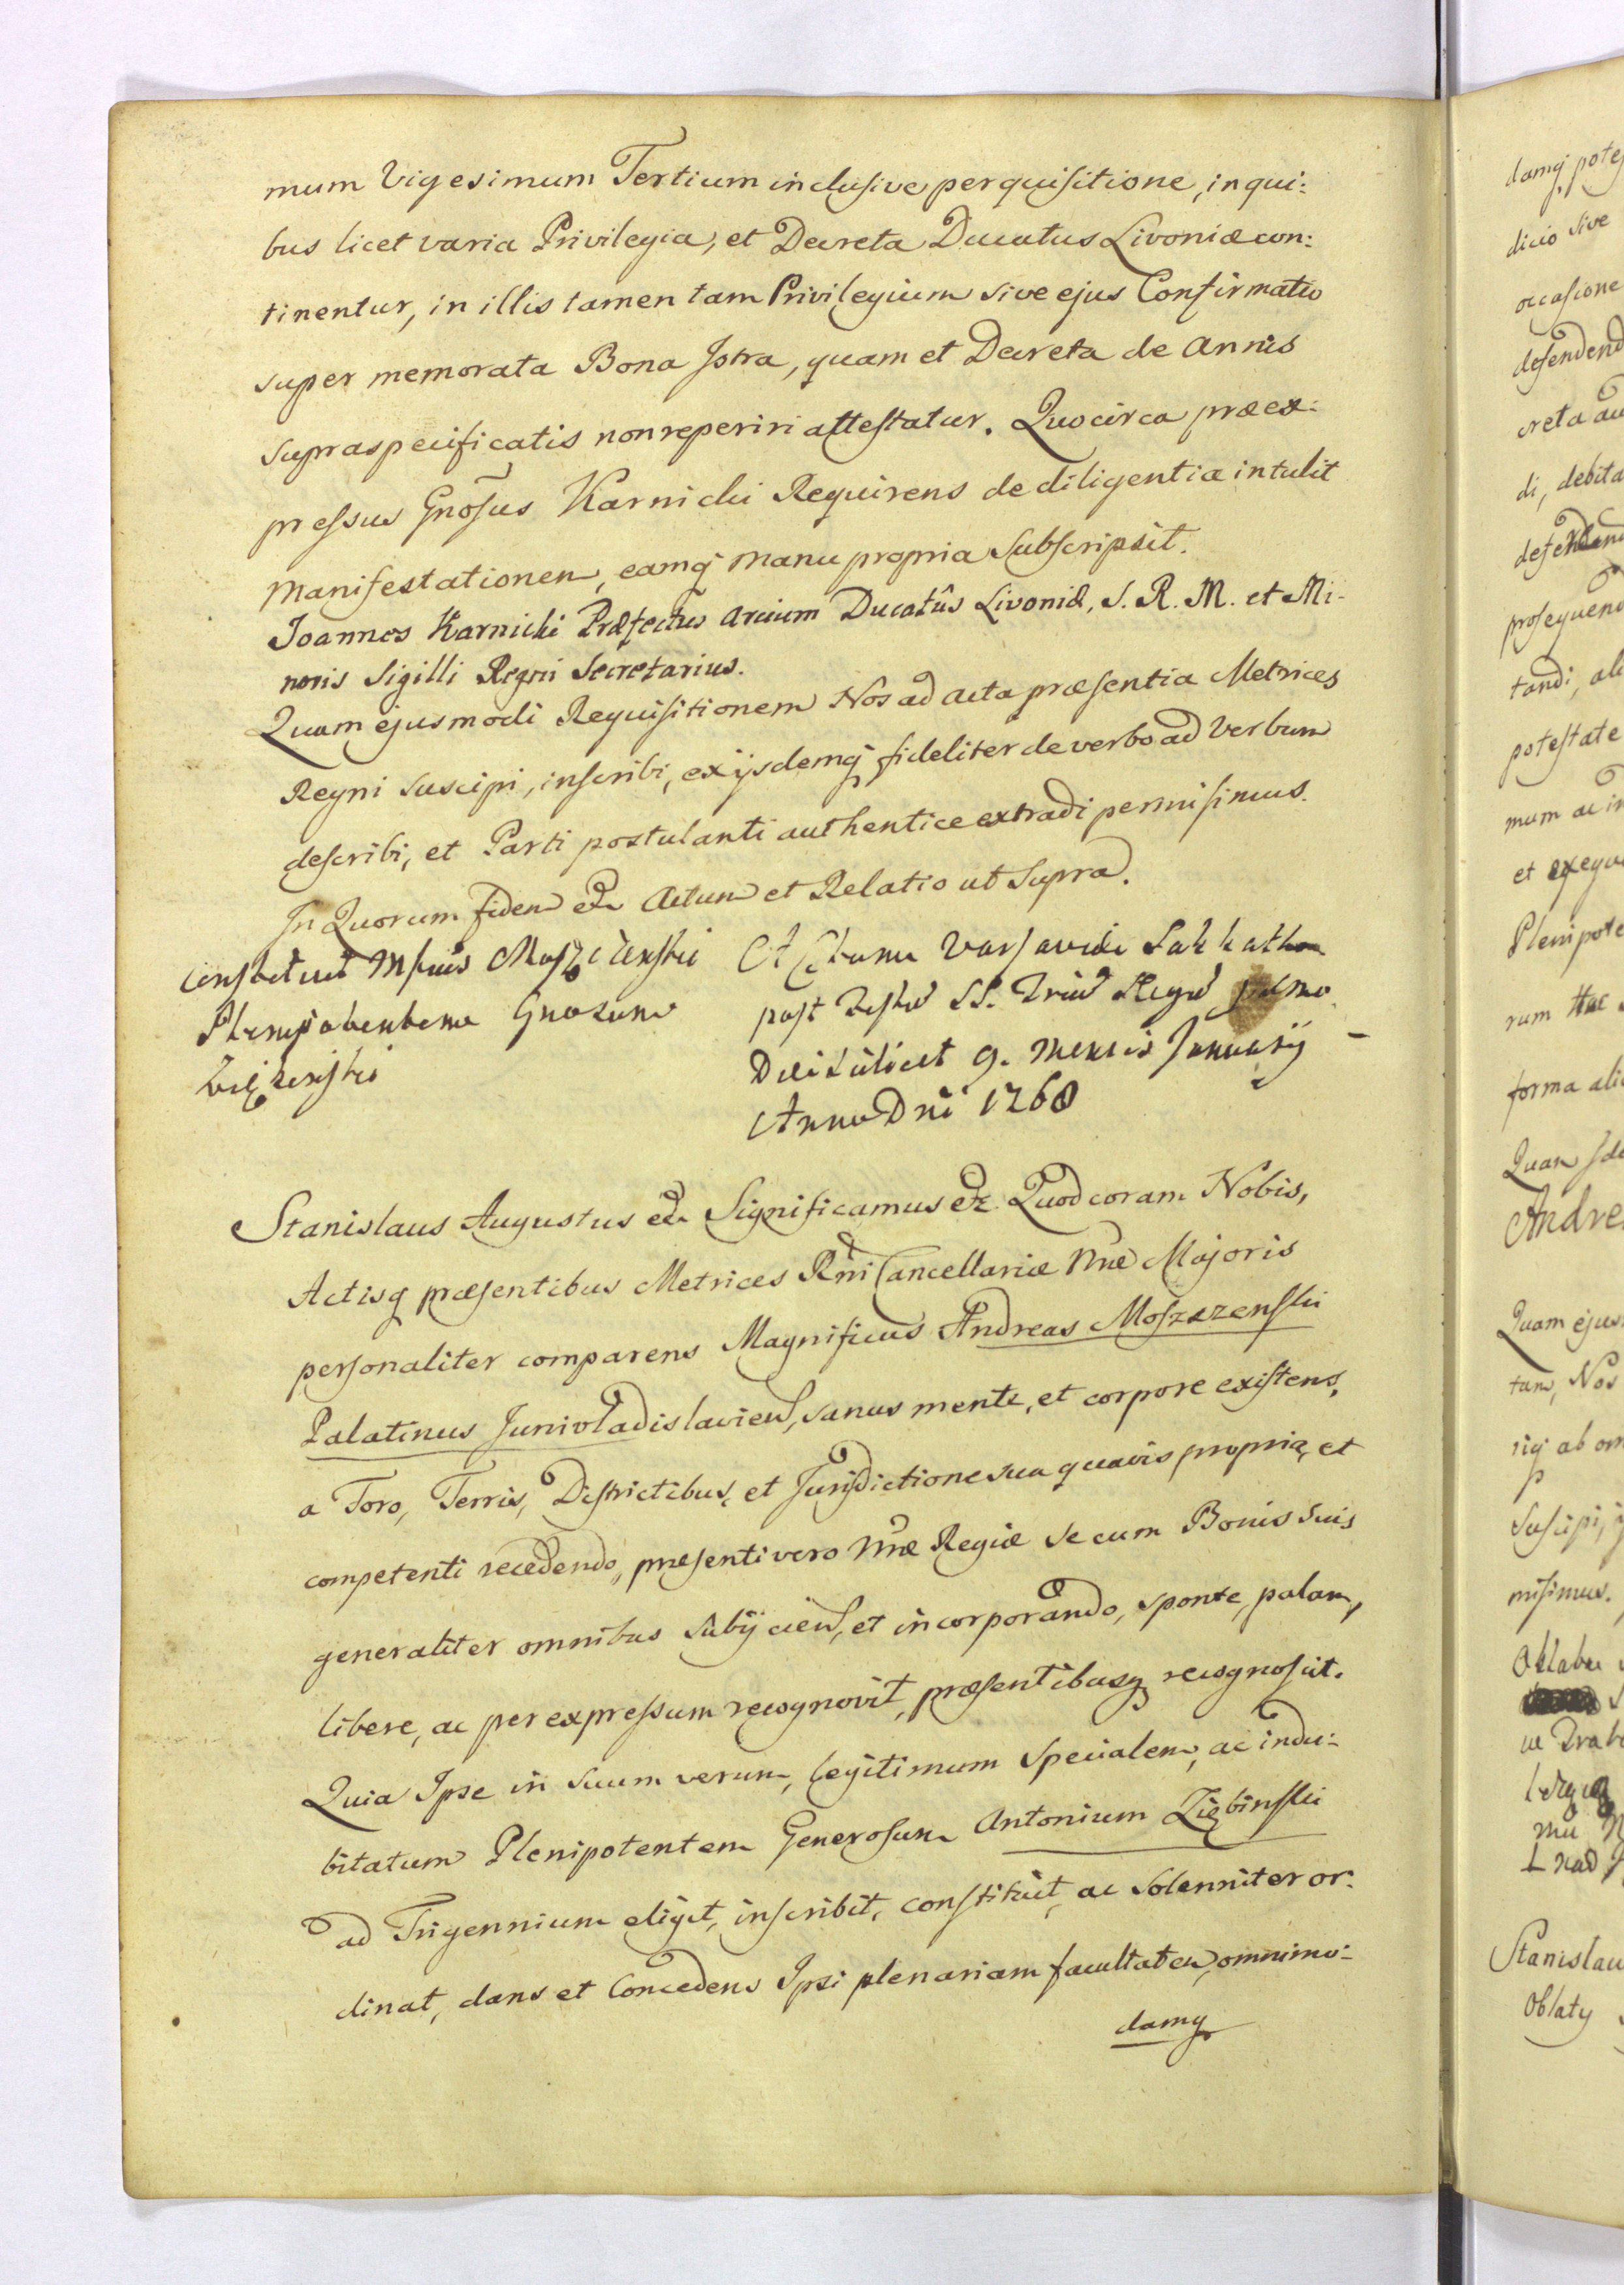 mum Vigesimum Tertium inclusive perquisitione, in qui:
bus licet varia Privilegia, et Decreta Ducatus Livoniæ con:
tinentur, in illis tamen tam Privilegium sive ejus Confirmatio
super memorata Bona Istra, quam et Decreta de Annis
supraspecificatis non reperiri attestatur. Quocirca præex:
pressus Gnõsus Karnicki Requirens de diligentia intulit
Manifestationem, eamq manu propria Subscripsit.
Joannes Karnicki Præfectus Arcium Ducatûs Livoniæ, S. R. M. et Mi-
noris Sigilli Regni Secretarius.
Quam ejusmodi Requisitionem Nos ad Acta præsentia Metrices
Regni suscipi, inscribi, exijsdemq fideliter de verbo ad Verbum
describi, et Parti postulanti authentice extradi permisimus.
In Quorum fidem etc Actum et Relatio ut Supra.
Constituit Mfcus Moszczenski
Plenipotentem Gnosum
Ziębinski
Actum Varsaviæ Sabbatho
post Festum SS. Trium Regum
Die scilicet 9. Mensis Januarij
Anno Dni 1768
Stanislaus Augustus etc Significamus etc Quod coram Nobis,
Actisq præsentibus Metrices Rñi Cancellariæ Nræ Majoris
personaliter comparens Magnificus Andreas Moszczenski
Palatinus Junivladislavien, sanus mente, et corpore existens,
a Foro, Terris, Districtibus, et Jurisdictione sua quavis propria, et
competenti recedendo, præsenti vero Nræ Regiæ se cum Bonis suis
generaliter omnibus Subijcien, et incorporando, sponte, palam,
libere, ac per expressum recognovit, præsentibusq recognoscit.
Quia Ipse in suum verum, legitimum Specialem, ac indu:
bitatum Plenipotentem Generosum Antonium Ziębinski
ad Trigennium eligit, inscribit, constituit, ac Solenniter or:
dinat, dans et Concedens Ipsi plenariam facultatem, omnimo:
damq